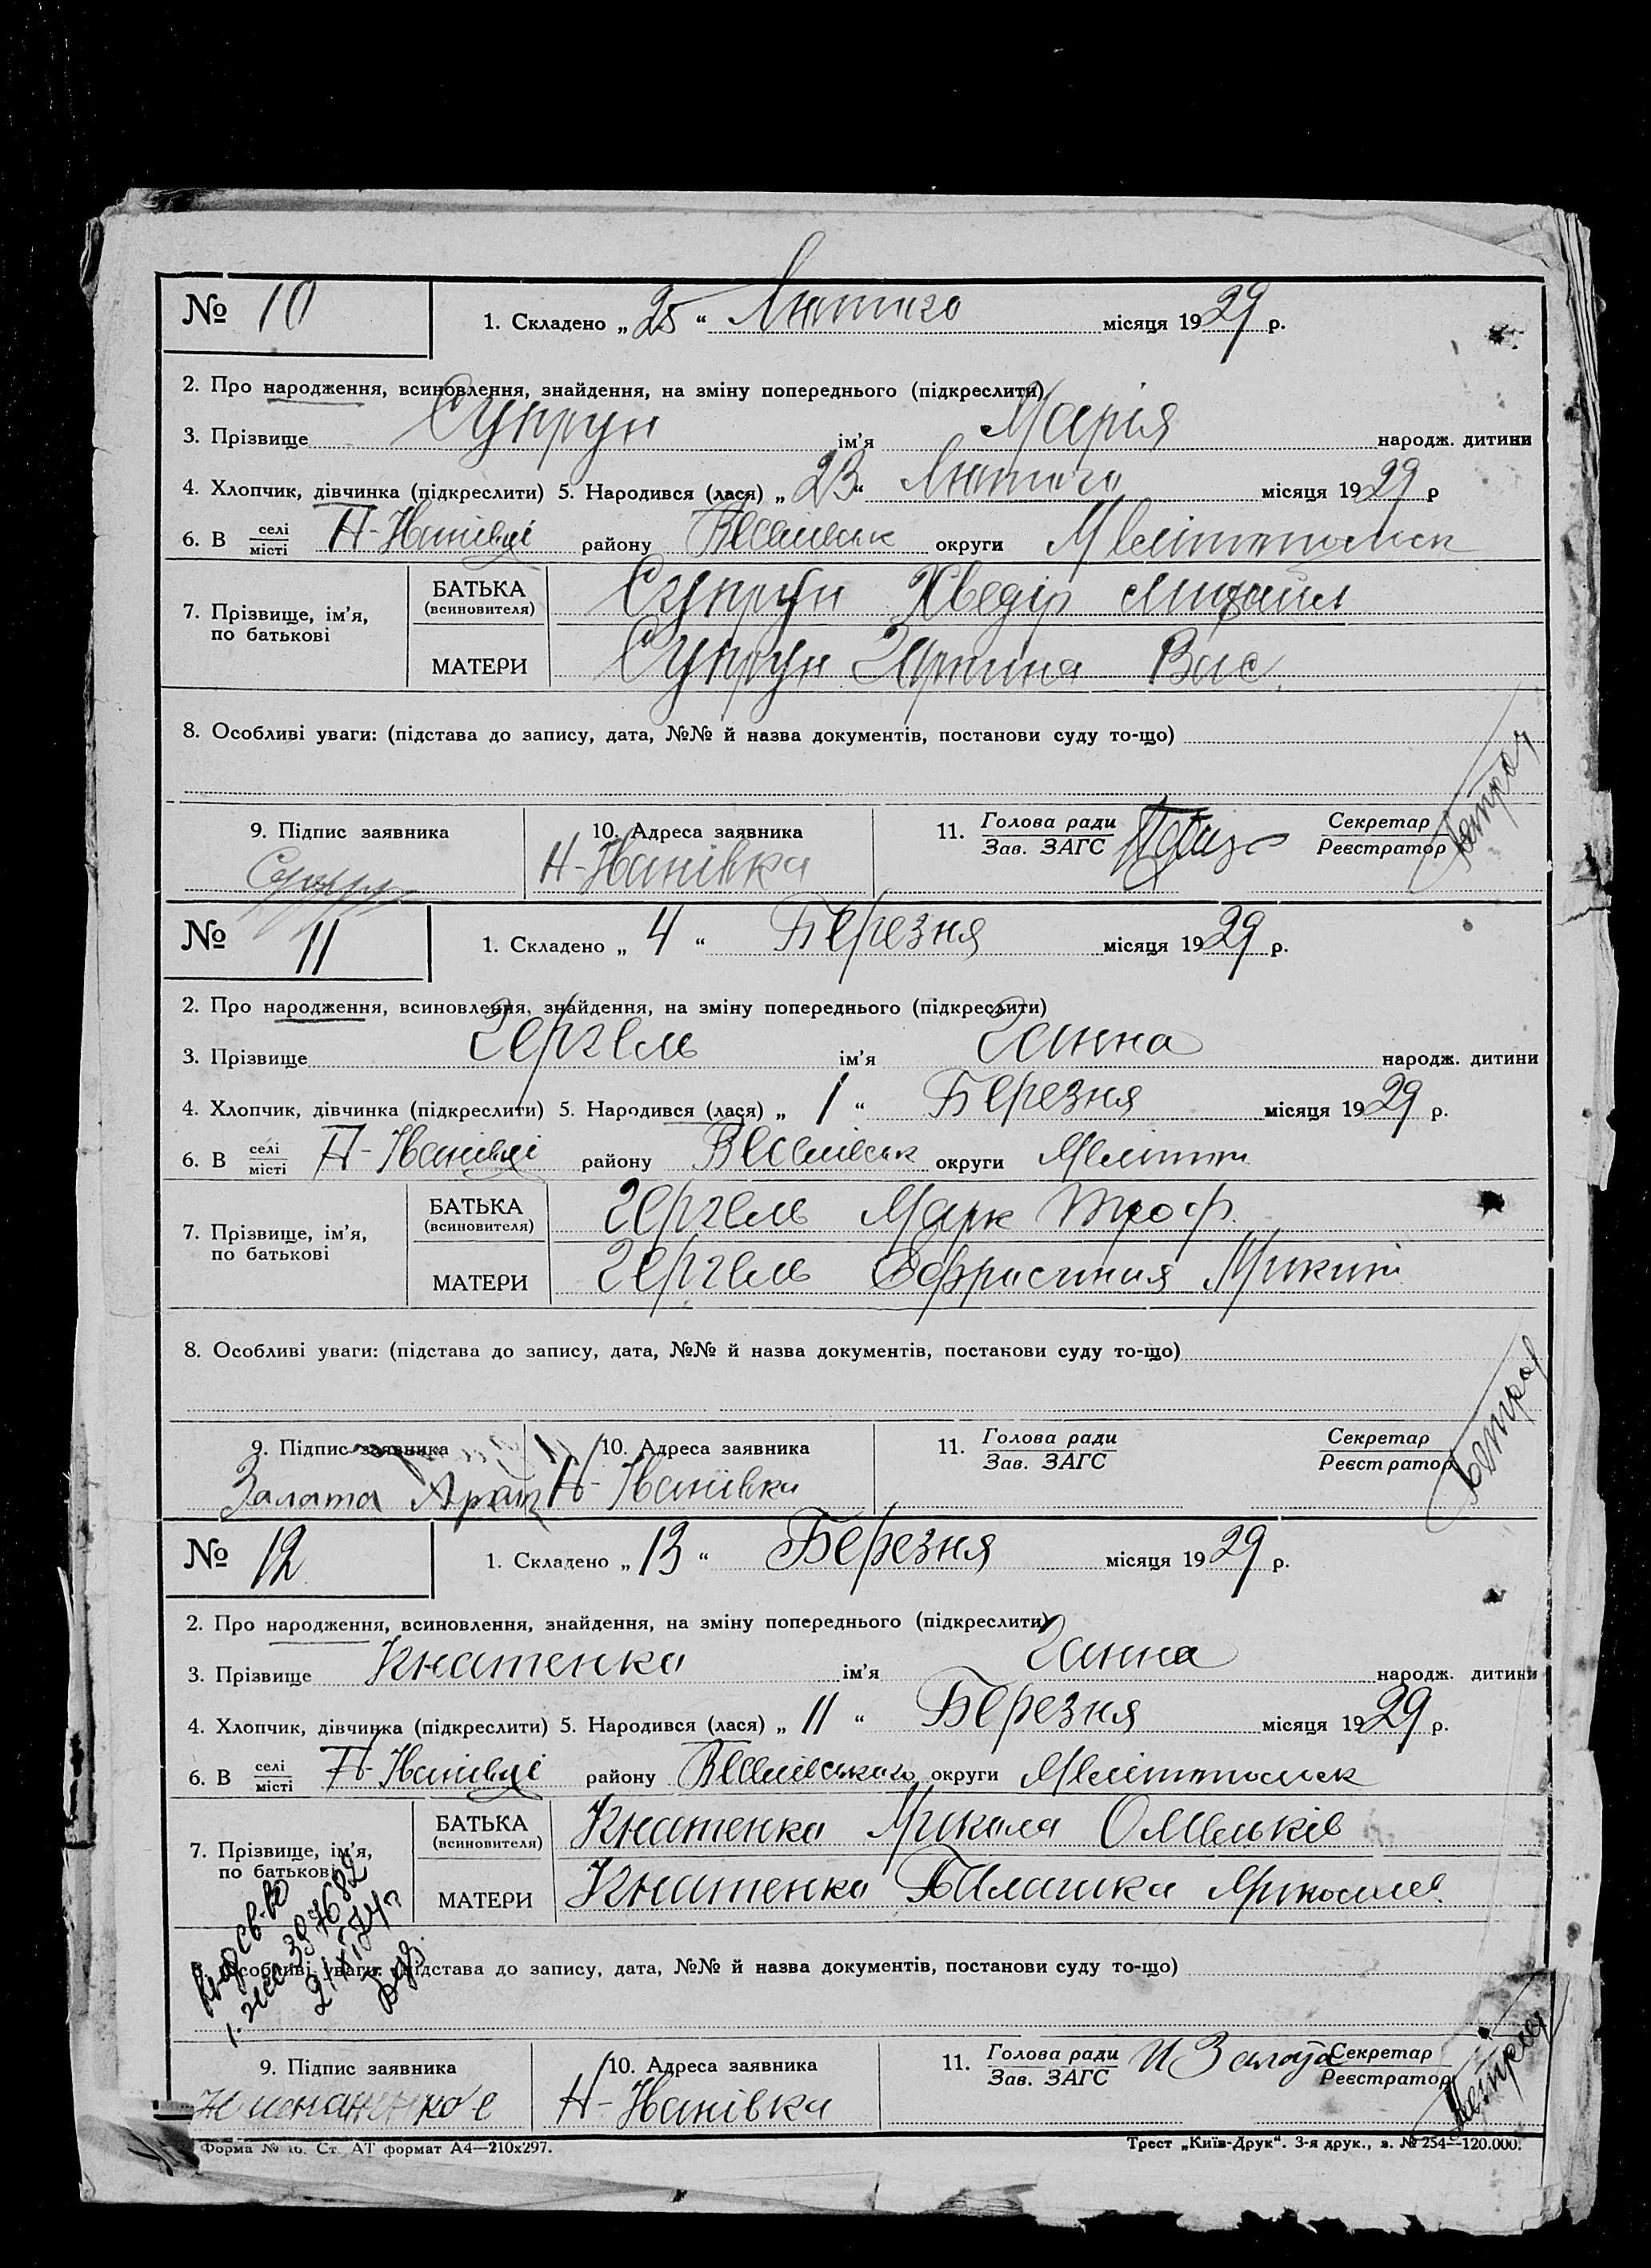 № 10
1. Складено „25“ Лютого місяця 1929 р.
2. Про народження, всиновлення, знайдення, на зміну попереднього (підкреслити)
3. Прізвище Супрун ім'я Марія народж. дитини
4. Хлопчик, дівчинка (підкреслити) 5. Народився (лася) „23“ Лютого місяця 1929 р
6. В селі місті Н-Іванівці району Веселівськ округи Мелітопольск
7. Прізвище, ім'я, по батькові
БАТЬКА (всиновителя) Супрун Хведір Михайл
МАТЕРИ Супрун Вас
8. Особливі уваги: (підстава до запису, дата, №№ й назва документів, постанови суду то-що)
9. Підпис заявника 10. Адреса заявника 11. Голова ради Зав. ЗАГС Секретар Реєстратор
Н-Іванівка
№ 11
1. Складено „4“ Березня місяця 1929 р.
2. Про народження, всиновлення, знайдення, на зміну попереднього (підкреслити)
3. Прізвище Гергель ім'я Ганна народж. дитини
4. Хлопчик, дівчинка (підкреслити) 5. Народився (лася) „1“ Березня місяця 1929 р.
6. В селі місті Н-Іванівці району Веселівськ округи Меліт
7. Прізвище, ім'я, по батькові
БАТЬКА (всиновителя) Гергель Марк Троф.
МАТЕРИ Гергель Микит
8. Особливі уваги: (підстава до запису, дата, №№ й назва документів, постанови суду то-що)
9. Підпис заявника 10. Адреса заявника 11. Голова ради Зав. ЗАГС Секретар Реєстратор
Залата Н-Іванівка
№ 12
1. Складено „13“ Березня місяця 1929 р.
2. Про народження, всиновлення, знайдення, на зміну попереднього (підкреслити)
3. Прізвище Кнатенко ім'я Ганна народж. дитини
4. Хлопчик, дівчинка (підкреслити) 5. Народився (лася) „11“ Березня місяця 1929 р.
6. В селі місті Н-Іванівці району Веселівського округи Мелітопольск
7. Прізвище, ім'я, по батькові
БАТЬКА (всиновителя) Кнатенко Микола Омельків
МАТЕРИ Кнатенко Пилашка Микол
Особливі уваги: (підстава до запису, дата, №№ й назва документів, постанови суду то-що)
9. Підпис заявника 10. Адреса заявника 11. Голова ради Зав. ЗАГС Секретар Реєстратор
Н-Іванівка
Форма № 16. Ст. АТ формат А4—210х297.
Трест „Київ-Друк“. 3-я друк., з. № 254—120.000.